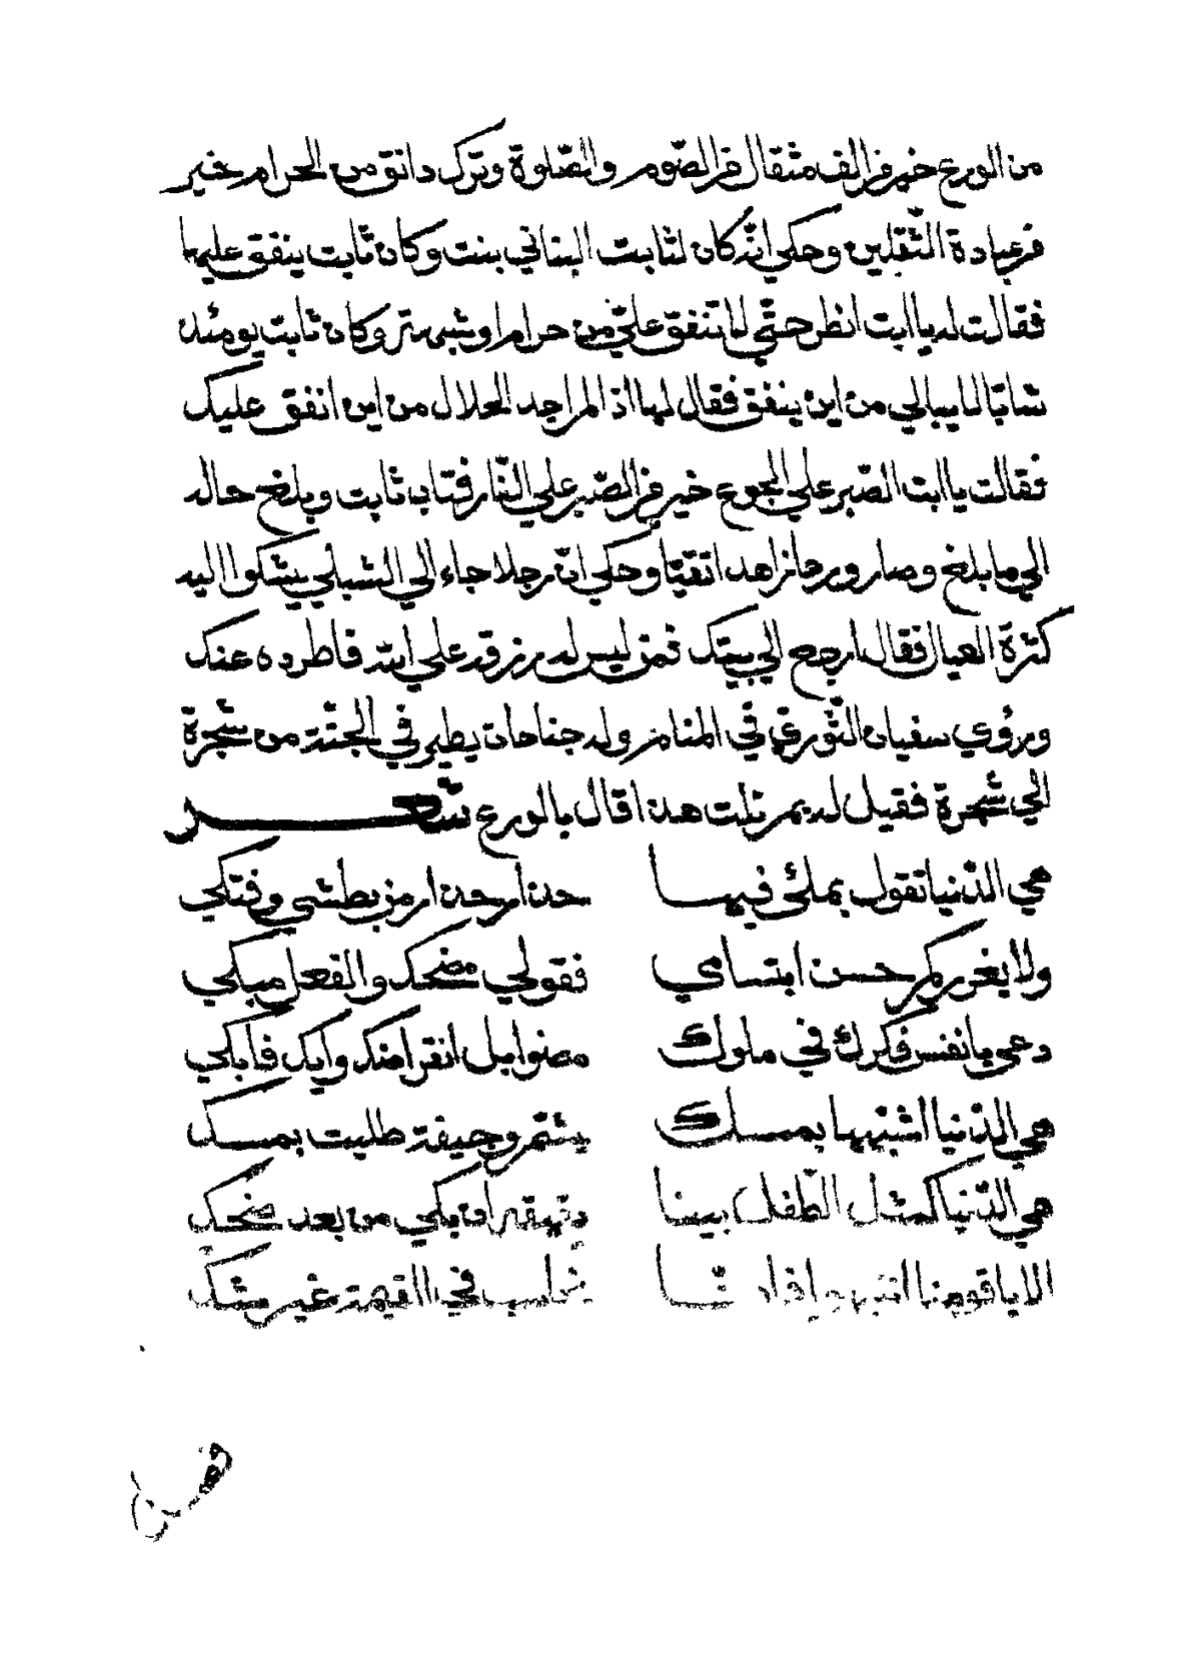 من الورع خير من الف مثقال من الصّوم والصّلوة وترك دانق من الحرام خير
من عبادة الثّقلين وحكي انّه كان لثابت البناني بنت وكان ثابت ينفق عليها
فقالت له يا ابت انظر حتّي لا تنفق عليّ من حرام او شبهة وكان ثابت يومئذ
شابّا لا يبالي من اين ينفق فقال لها اذا لم اجد الحلال من اين انفق عليك
فقالت يا ابت الصّبر علي الجوع خير من الصّبر علي النّار فتاب ثابت وبلغ حاله
الي ما بلغ وصار ورعا زاهدا تقيّا وحكي انّ رجلا جاء الي الشبلي يشكوا اليه
كثرة العيال فقال ارجع الي بيتك فمن ليس له رزقه علي الله فاطرده عنك
ورؤي سفيان الثّوريّ في المنام وله جناحان يطير في الجنّة من شجرة
الي شجرة فقيل له بم نلت هذا قال بالورع شعر
هي الدّنيا تقول بملئ فيها حذار حذار من بطشي وفتكي
ولا يغرركم حسن ابتسامي فقولي مضحك والفعل مبكي
دعي يا نفس فكرك في ملوك مضوا بل انقراضك وابك فابكي
هي الدّنيا اشبّهها بمسك يشمّ وجيفة طليت بمسك
هي الدّنيا كمثل الطّفل بينا يقهقه ان بكي من بعد ضحك
الا يا قومنا انتبهوا فانّا نحاسب في القيمة غير شك